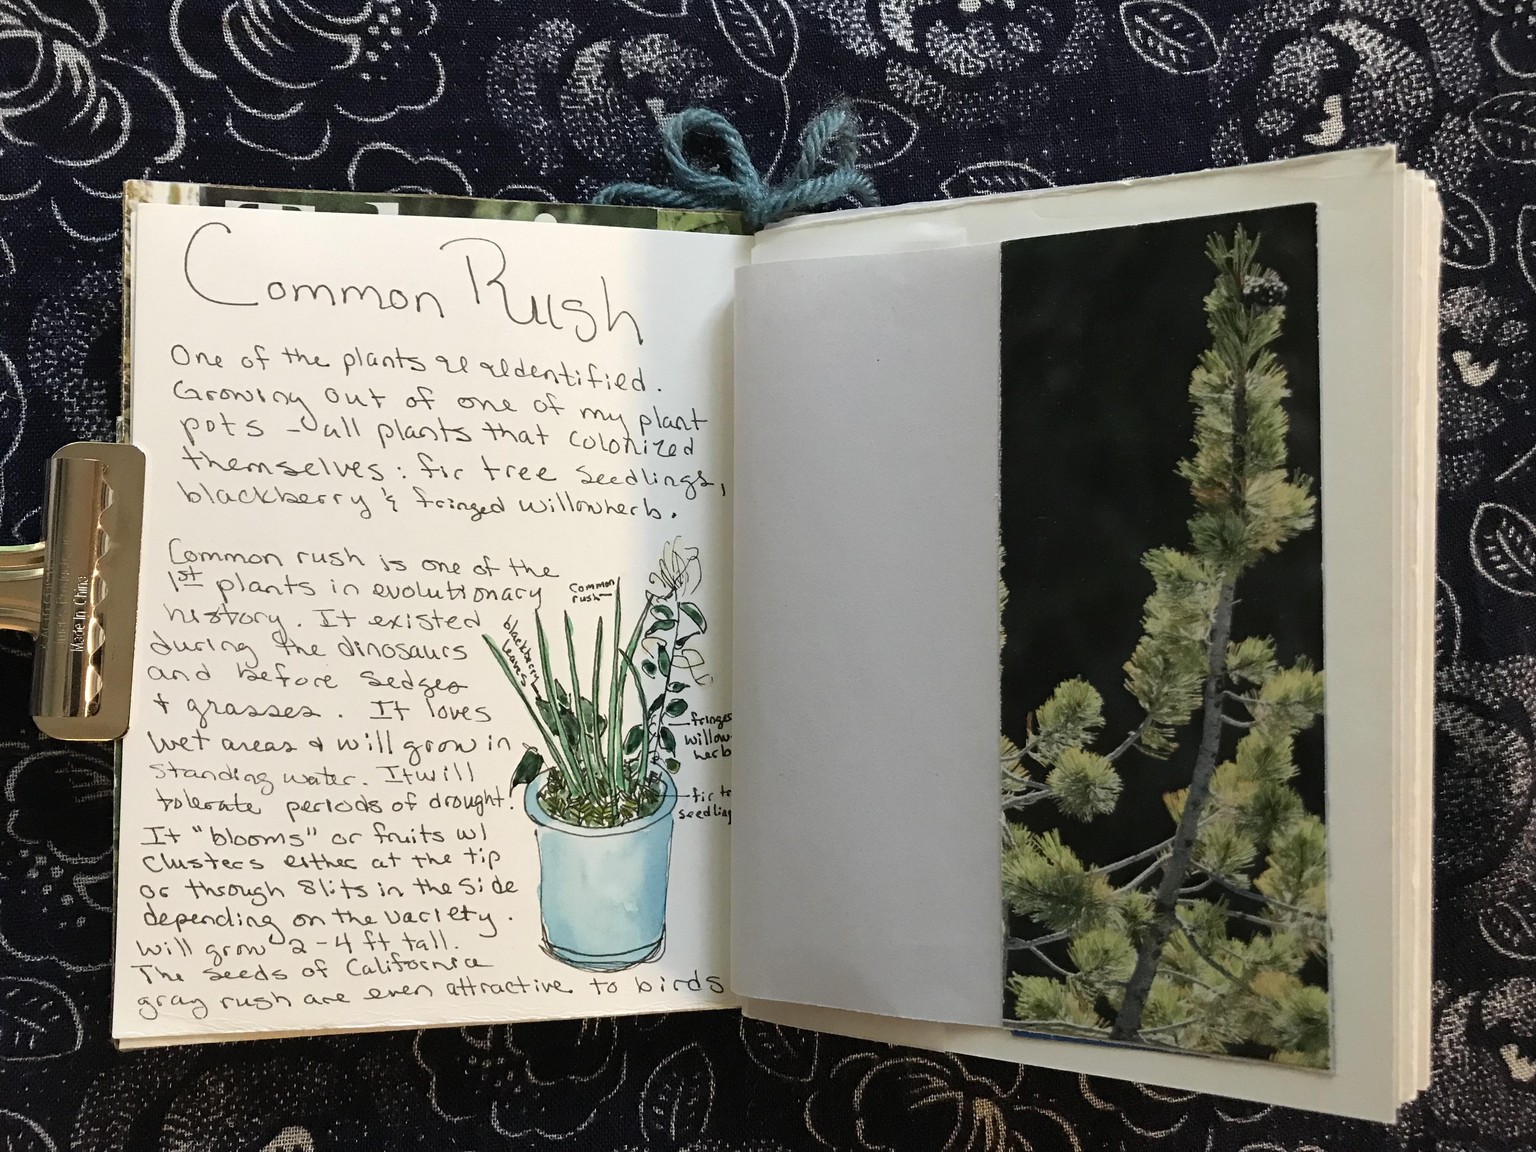 Common Rush
One of the plants identified.
Growing out of one of my plant
pots - all plants that colonized
themselves: fir tree seedlings,
blackberry & fringed willowherb.
Common rush is one of the
1st plants in evolutionary
history. It existed
during the dinosaurs
and before sedges
+ grasses. It loves
wet areas & will grow in
standing water. It will
tolerate periods of drought.
It "blooms" or fruits w/
clusters either at the tip
or through slits in the side
depending on the variety.
Will grow 2-4 ft tall.
The seeds of California
gray rush are even attractive to birds
Common
rush
blackberry
leaves
fringed
willow-
herb
fir
seedling
Made In China